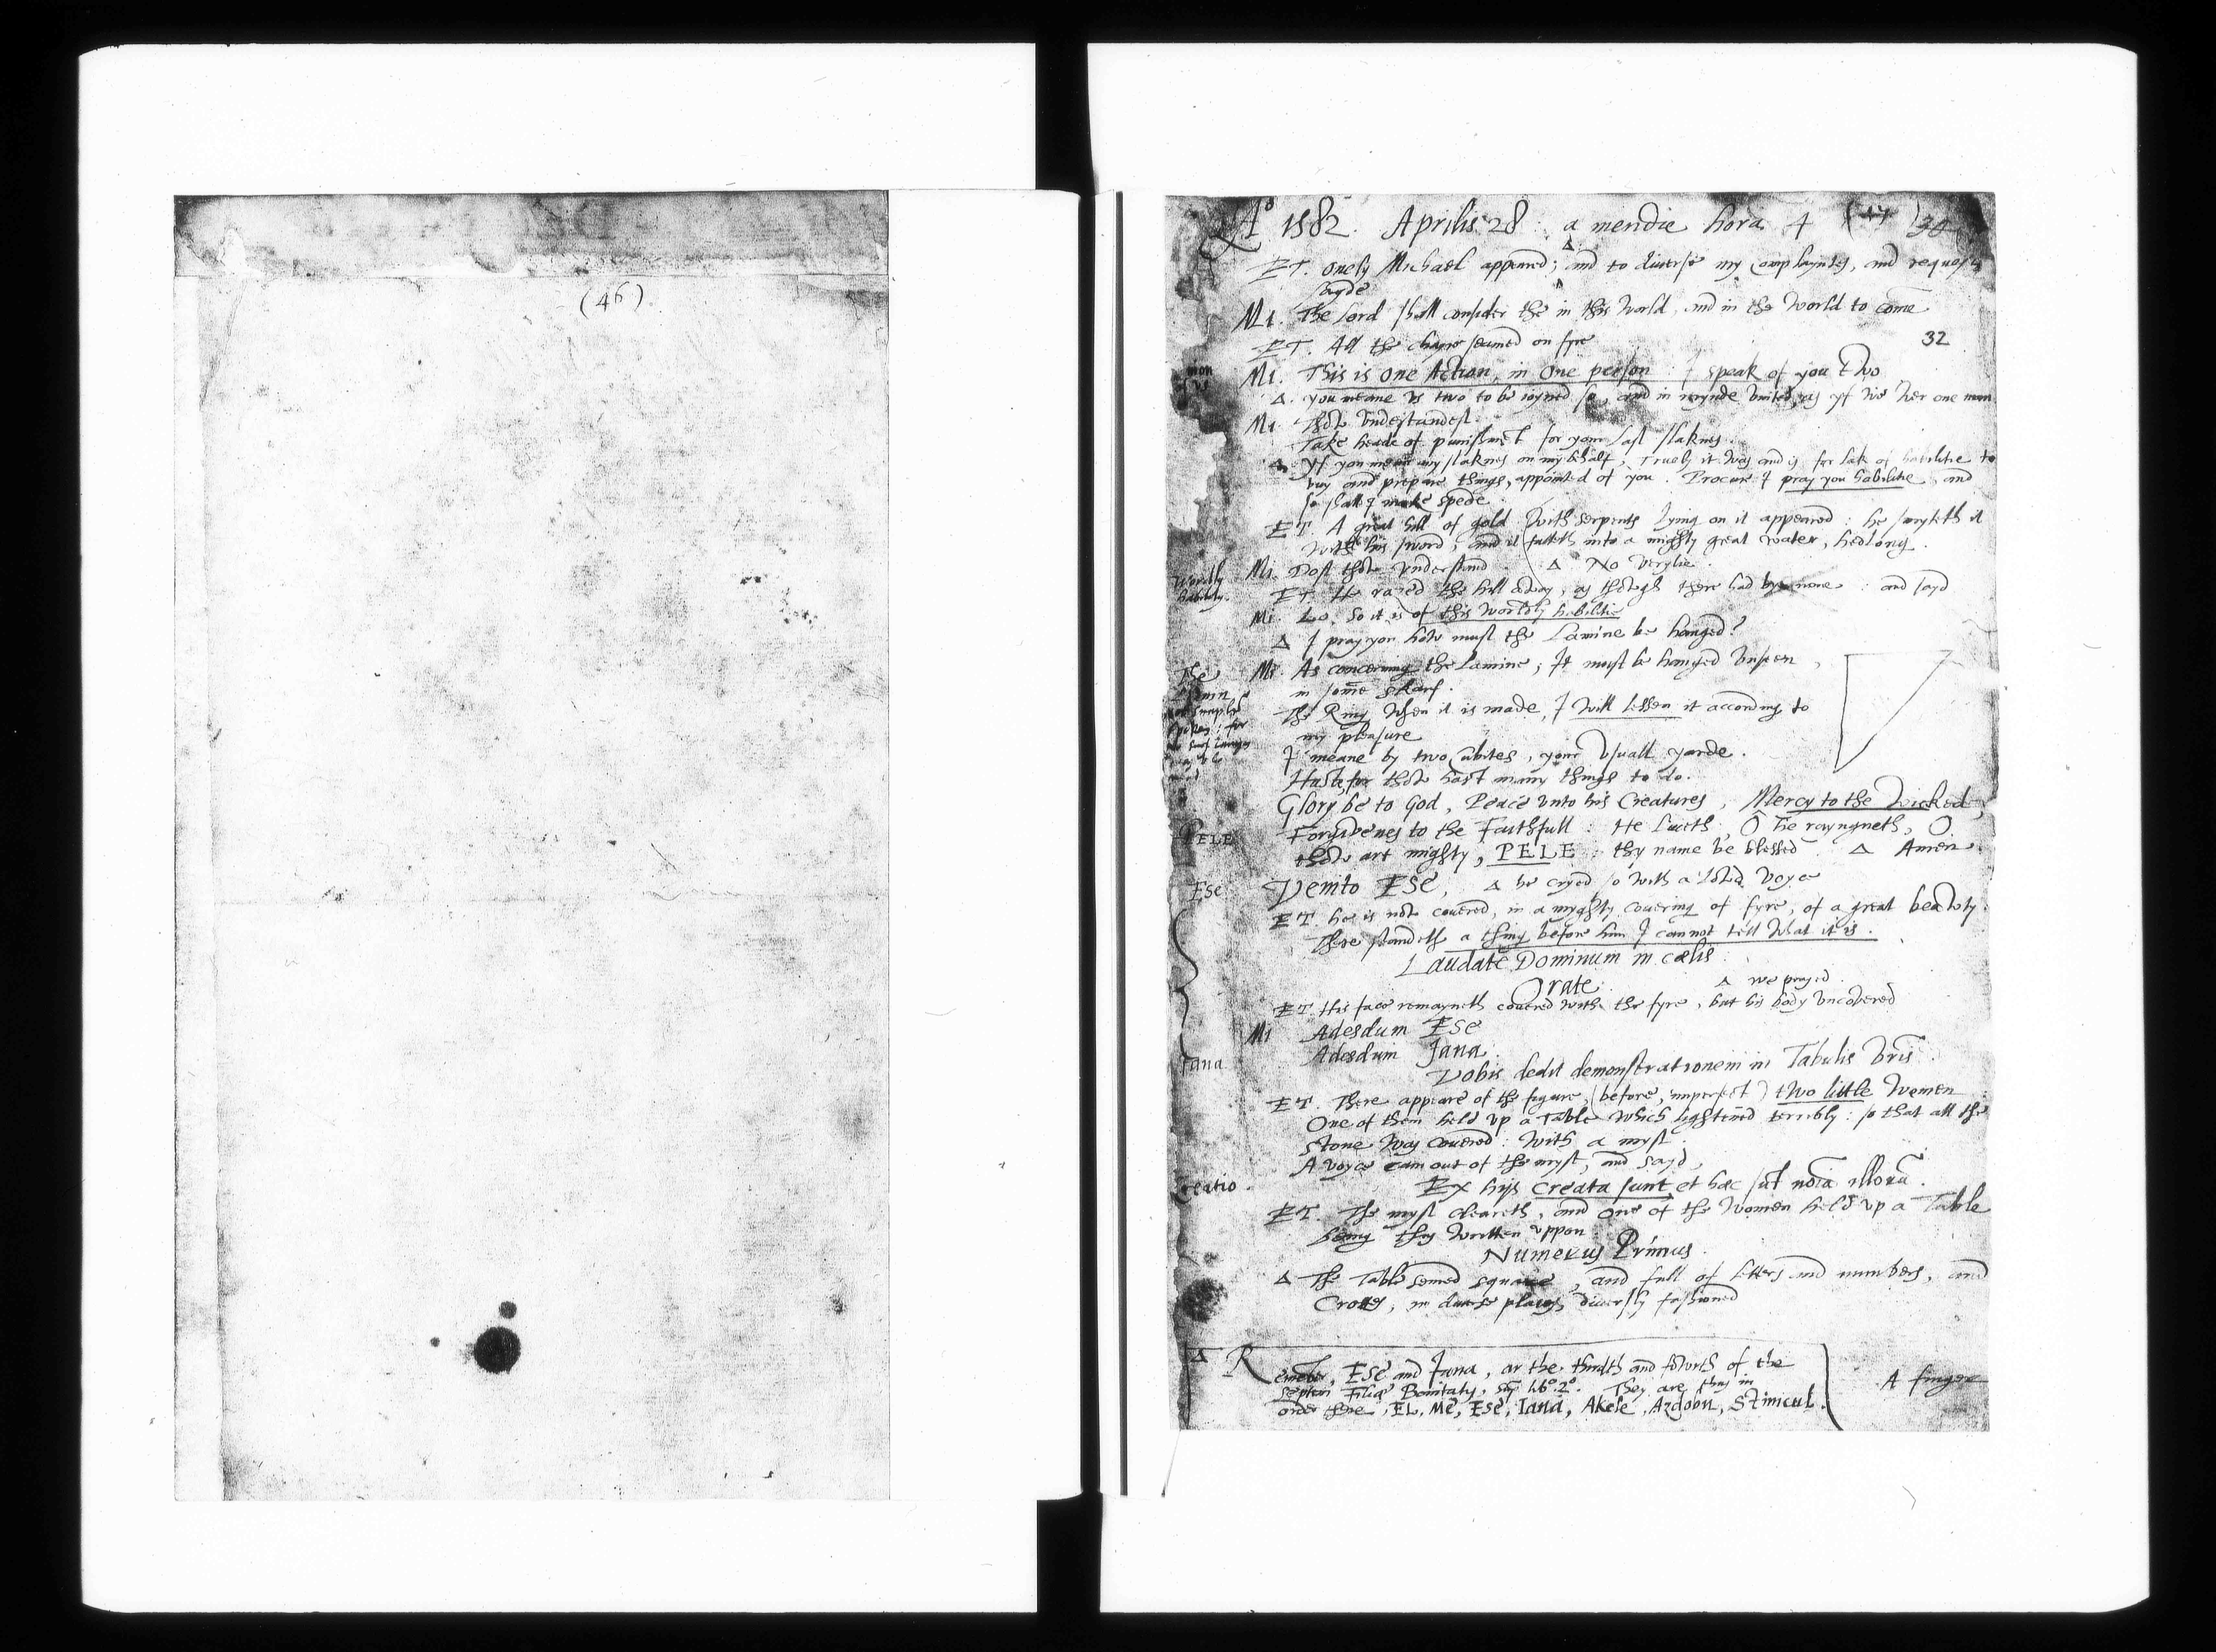 (46)
Aº 1582. Aprilis: 28: a meridie hora 4 (47) 30
Δ
ET. onely Michael appeared; and to diverse my complaynts, and requests
sayde
Mi. The Lord shall consider the in this world, and in the world to come
ET. All the chayre seamed on fyre 32
Mi. This is one Action, in One person: I speak of you two
Δ. you meane us two to be ioyned so, and in mynde united, as yf we wer one man
Mi. Thow understandest.
Take heade of punishment for your last slaknes.
Δ. Yf you mean any slaknes on my behalf, Truely it was and is for lak of habilitie to
buy and prepare things, appointed of you. Procure I pray you habilitie, and
so shall I make spede.
ET. A great hill of gold with serpents lying on it appeared: he smyteth it
with his sword, and it falleth into a mighty great water, hedlong.
Mi. Dost thow understand. Δ No verylie.
Wordly
hability.
ET. He rased the hill away, as thowgh there had byn none: and sayd
Mi. Lo, so it is of this worldly habilitie
Δ I pray you how must the Lamine be hanged?
Mi. As concerning the Lamine; It must be hanged unseen,
in some skarf.
The
The Ring when it is made, I will lessen it according to
my pleasure
I meane by two cubites, your usuall yarde.
Haste, for thow hast many things to do.
Glory be to God, Peace unto his Creatures, Mercy to the wicked,
PELE
Forgivenes to the Faithfull: He liveth, O he rayngneth, O
thow art mighty, PELE: thy name be blessed Δ Amen.
Ese
Venito Ese, Δ he cryed so with a lowd voyce
ET he is now covered, in a myghty covering of fyre, of a great beawty.
There standeth a thing before him I cannot tell what it is.
Laudate Dominum in cælis.
Orate. Δ we prayed.
ET. His face remayneth covered with the fyre, but his body uncovered
Mi Adesdum Ese
Iana
Adesdum Jana.
Vobis dedit demonstrationem in Tabulis vris.
ET. There appeare of the figure, (before, imperfect) two little women
One of them held up a Table which lightened terribly: so that all the
stone was covered: with a myst.
A voyce cam out of the myst, and sayd,
Creatio
Ex hijs creata sunt et hæc sut noia illoru.
ET. The myst cleareth, and one of the women held up a Table
being thus written uppon
Numerus Primus.
Δ The Table semed square, and full of letters and numbers, and
Crosses, in diverse places, diversly fashioned
Δ Remember, Ese and Jana, ar the thirdth and fowrth of the
septem Filiæ Bonitatis, sup libº. 2º. They are thus in
order there, EL, Me, Ese, Iana, Akele, Azdobn, Stimcul.
A finger